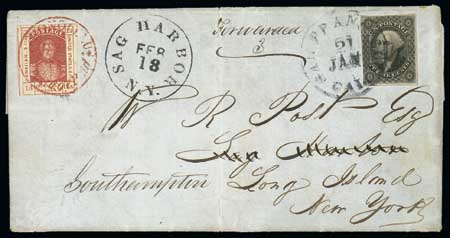 POSTAGE
SAG HARBOR
FEB
18
N.Y.
Forwarded
3
SAN FRAN
JAN
CAL
W R Post Esq
Sag Harbor
Southampton Long Island
New York